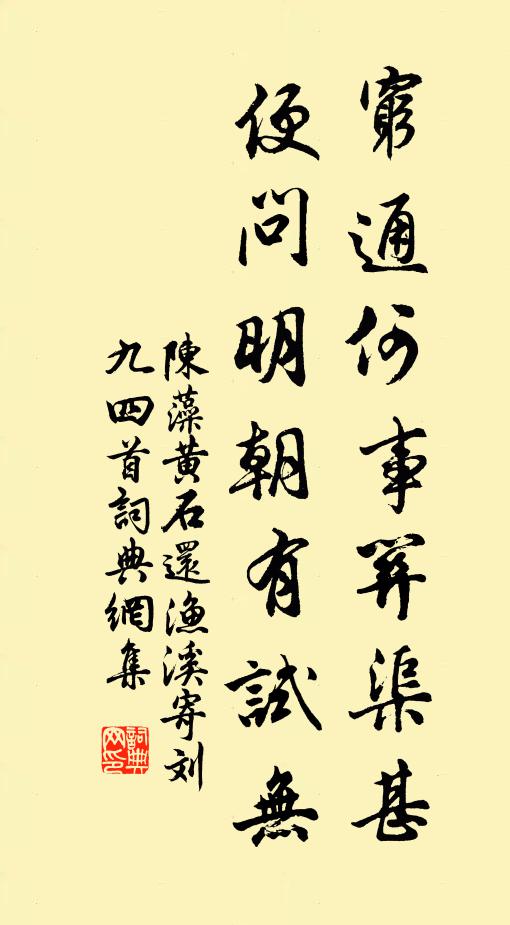 窮通何事關渠甚
便問明朝有試無
陳藻黃石還漁溪寄刘
九四首詞典網集
詞典
网印